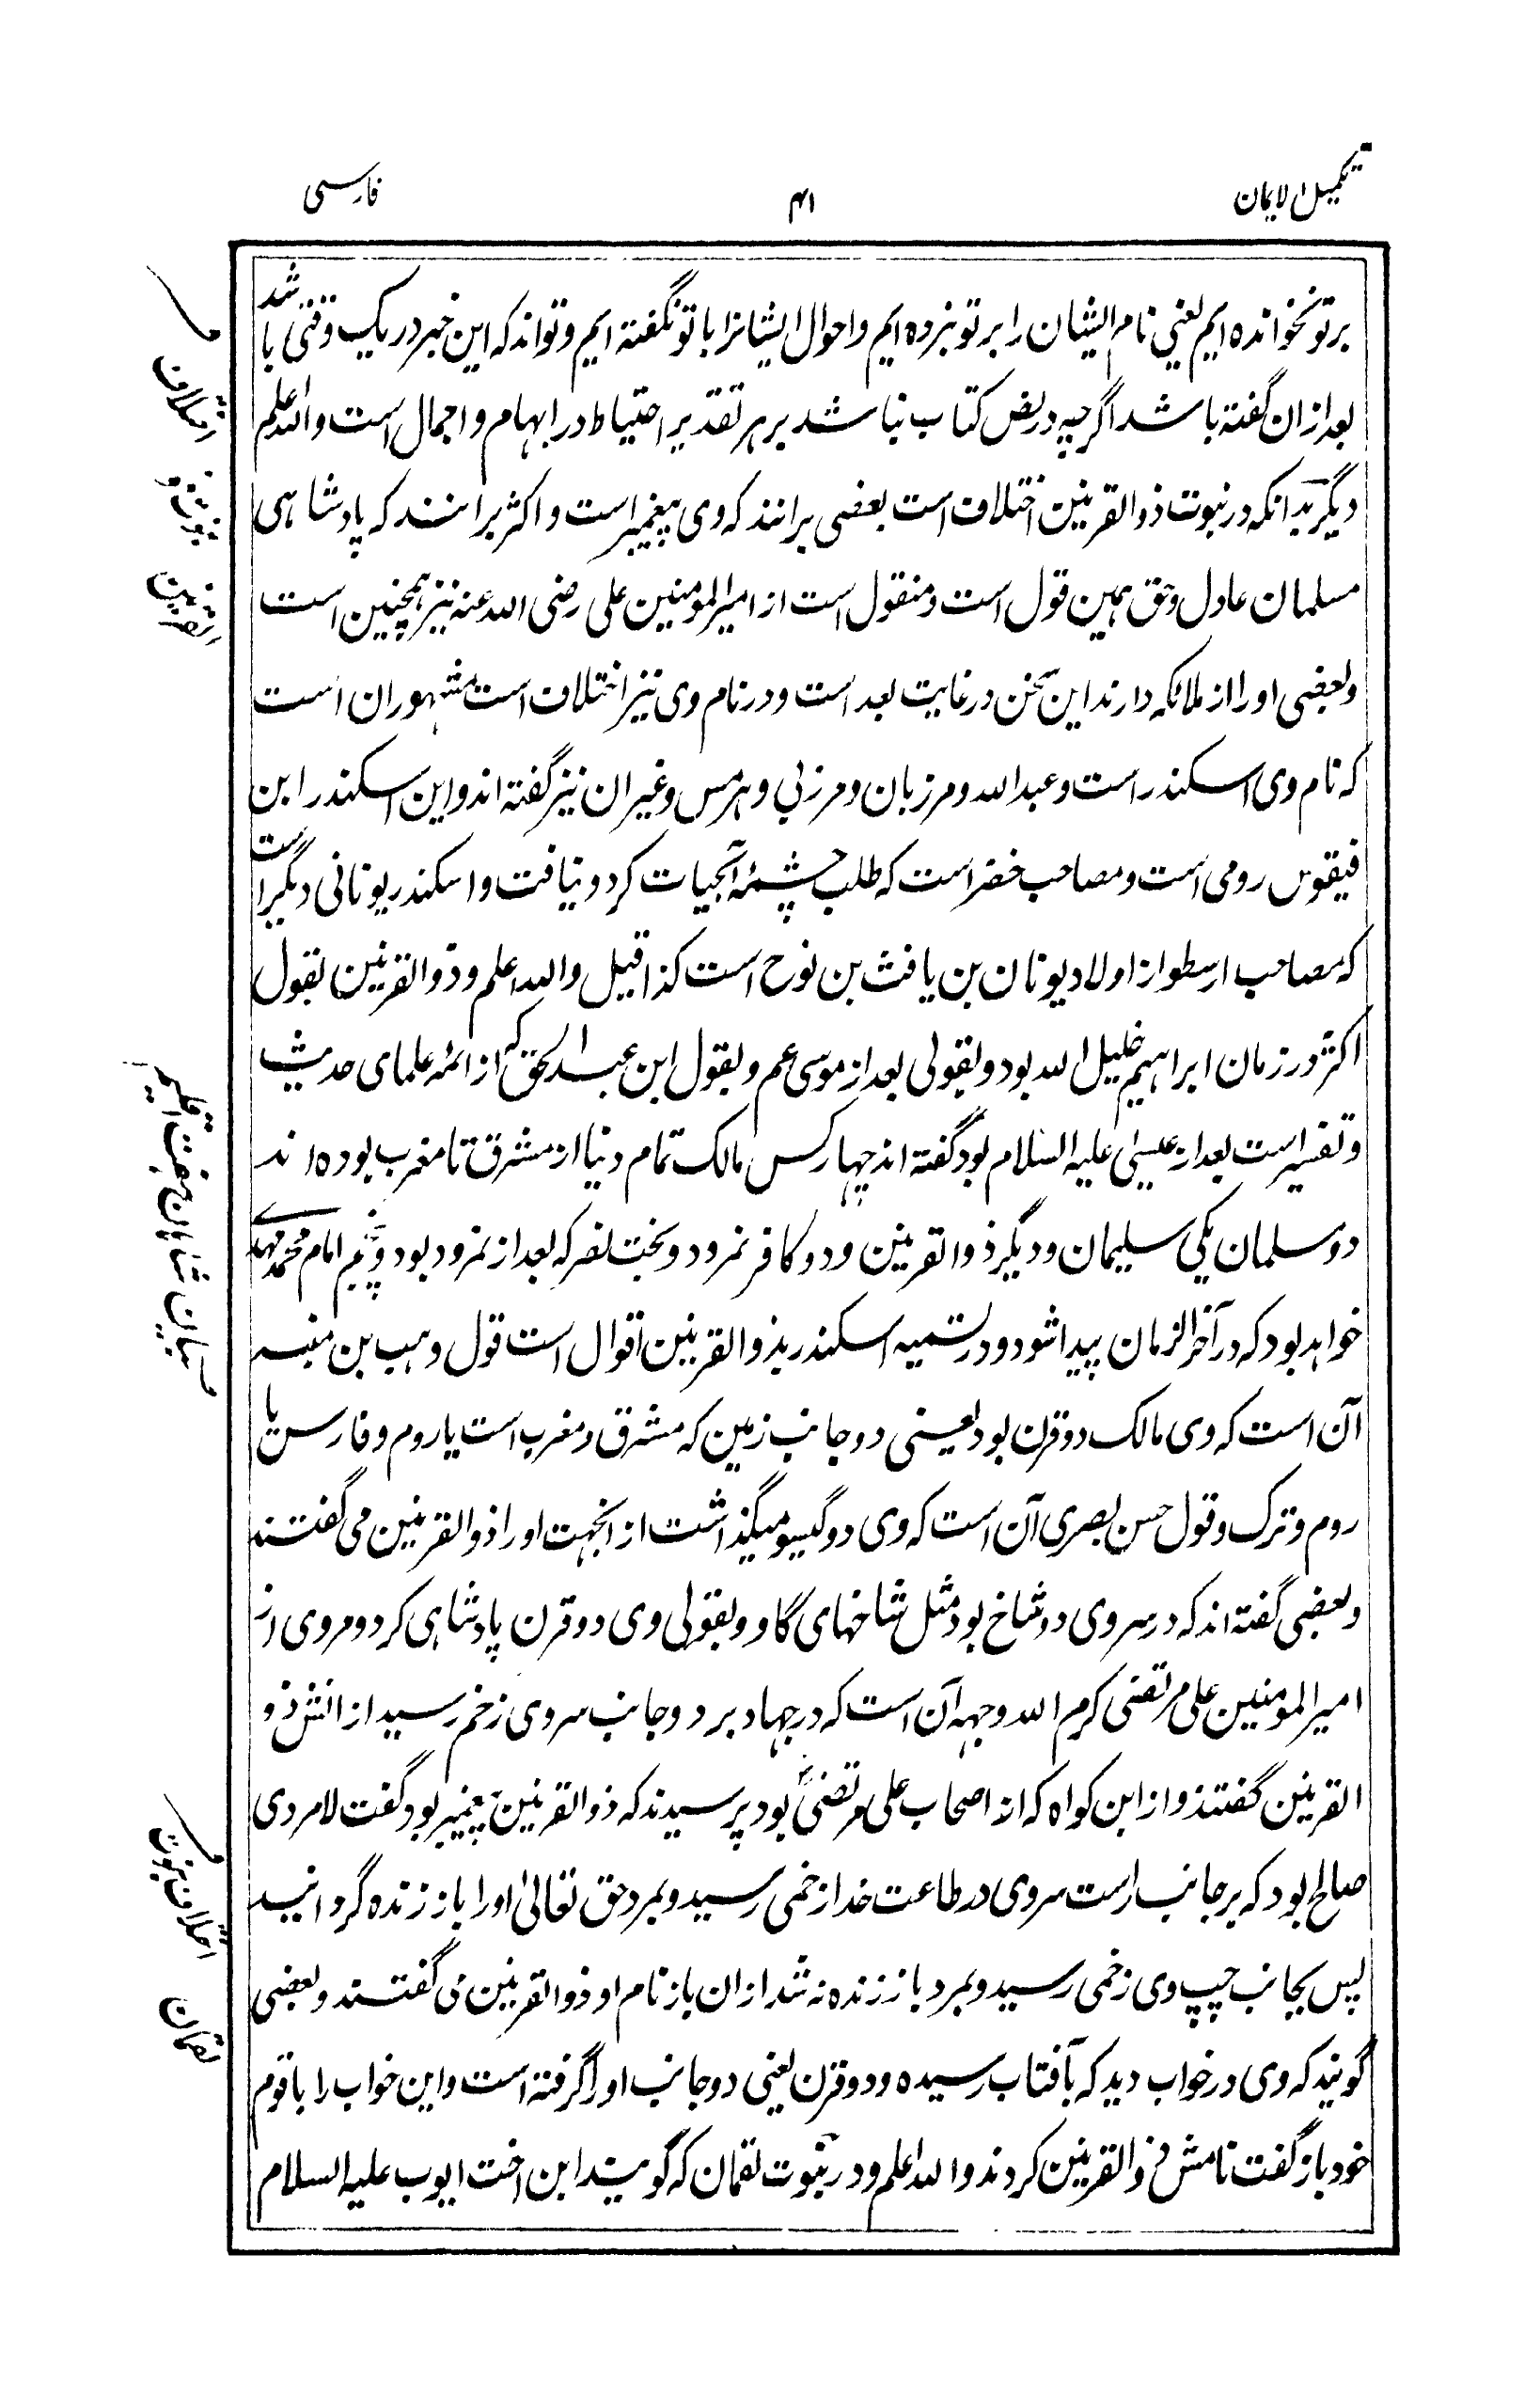 تکمیل الایمان
۴۱
فارسی
برتو نخوانده ایم یعنی نام ایشان را بر تو نبرده ایم و احوال ایشانرا با تو نگفته ایم و تواند که این خبر در یک وقتی باشد
بعد ازان گفته باشد اگرچه در نص کتاب نباشد بر هر تقدیر احتیاط در ابهام و اجمال است والله اعلم
دیگر بدانکه در نبوت ذوالقرنین اختلاف است بعضی برانند که وی پیغمبر است و اکثر برانند که پادشاهی
مسلمان عادل و حق همین قول است و منقول است از امیرالمومنین علی رضی الله عنه نیز همچنین است
و بعضی او را از ملائکه دارند این سخن در غایت بعد است و در نام وی نیز اختلاف است مشهور ان است
که نام وی اسکندر است و عبدالله و مرزبان و مرزبی و هرمس و غیر ان نیز گفته اند و این اسکندر ابن
فیقوس رومی است و مصاحب خضر است که طلب چشمۀ آبحیات کرد و نیافت و اسکندر یونانی دیگر است
که مصاحب ارسطو از اولاد یونان بن یافث بن نوح است کذا قیل والله اعلم و ذوالقرنین بقول
اکثر در زمان ابراهیم خلیل الله بود و بقولی بعد از موسی عم و بقول ابن عبدالحق که از ائمه علمای حدیث
و تفسیر است بعد از عیسی علیه السلام بود گفته اند چهار کس مالک تمام دنیا از مشرق تا مغرب بوده اند
دو مسلمان یکی سلیمان و دیگر ذوالقرنین و دو کافر نمرود و بخت نصر که بعد از نمرود بود و پنجم امام محمد مهدے
خواهد بود که در آخر الزمان پیدا شود و در تسمیه اسکندر بذوالقرنین اقوال است قول وهب بن منبه
آن است که وی مالک دو قرن بود یعنی دو جانب زمین که مشرق و مغرب است یا روم و فارس یا
روم و ترک و قول حسن بصری آن است که وی دو گیسو میگذاشت از انجهت او را ذوالقرنین می گفتند
و بعضی گفته اند که در سر وی دو شاخ بود مثل شاخهای گاو و بقولی وی دو قرن پادشاهی کرد و مروی از
امیرالمومنین علی مرتضی کرم الله وجهه آن است که در جهاد بر دو جانب سر وی زخم رسید از انش ذو
القرنین گفتند و از ابن کواه که از اصحاب علی مرتضی بود پرسیدند که ذوالقرنین پیغمبر بود گفت لا مردی
صالح بود که بر جانب راست سر وی در طاعت خدا زخمی رسید و بمرد حق تعالیٰ او را باز زنده گردانید
پس بجانب چپ وی زخمی رسید و بمرد باز زنده نه شد ازان باز نام او ذوالقرنین می گفتند و بعضی
گویند که وی در خواب دید که بآفتاب رسیده و دو قرن یعنی دو جانب او را گرفته است و این خواب را با قوم
خود باز گفت نامش ذوالقرنین کردند والله اعلم و در نبوت لقمان که گویند ابن اخت ایوب علیه السلام
اختلاف
نبوت ذو
القرنین
بیان شاهان هفت اقلیم
اختلاف نبوت
لقمان